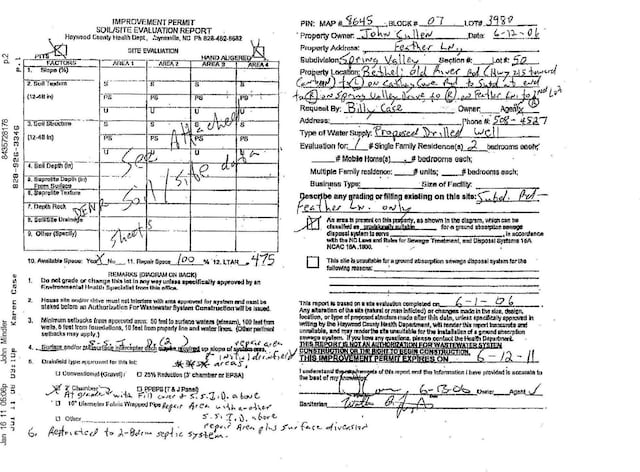 IMPROVEMENT PERMIT
SOIL/SITE EVALUATION REPORT
Haywood County Health Dept., Waynesville, NC Ph 828-452-6682
SITE EVALUATION
PITS HAND AUGERED
FACTORS AREA 1 AREA 2 AREA 3 AREA 4
1. Slope (%)
2. Soil Texture S S S S
(12-48 in) PS PS PS PS
U U U U
3. Soil Structure S S S S
(12-48 in) PS PS PS PS
U U U U
4. Soil Depth (in)
5. Saprolite Depth (in)
From Surface
6. Saprolite Texture
7. Depth Rock
8. Soil/Site Drainage
9. Other (Specify)
See Attached
DENR Soil/site data
sheets
10. Available Space: Yes X No 11. Repair Space 100 % 12. LTAR .475
REMARKS (DIAGRAM ON BACK)
1. Do not grade or change this lot in any way unless specifically approved by an
Environmental Health Specialist from this office.
2. House site and/or drive must not interfere with area approved for system and must be
staked before an Authorization For Wastewater System Construction will be issued.
3. Minimum setbacks from approved area: 50 feet to surface waters (stream), 100 feet from
wells, 5 feet from foundations, 10 feet from property line and water lines. (Other pertinent
setbacks may apply.)
S.S.I.D. (2) repair area
4. Surface and/or subsurface interceptor upslope of system area.
& initial drainfield areas.
5. Drainfield type approved for this lot:
Conventional (Gravel) 25% Reduction (3' chamber or EPSA)
Chamber PPBPS (T & J Panel)
At grade with Fill cover & S.S.I.D. above
10" Diameter Fabric Wrapped Pipe Repair Area with another
S.S.I.D. above
Other repair Area plus surface diversion
6. Restricted to 2-Bdrm septic system.
PIN: MAP # 8645 BLOCK # 07 LOT# 3980
Property Owner: John Cullen Date: 6-12-06
Property Address: Feather Ln.
Subdivision: Spring Valley Section #: Lot #: 50
Property Location: Bethel: Old River Rd (Hwy 215 toward
Request By: Billy Case Owner: Agent: X
Address: Phone #: 508-4527
Type of Water Supply: Proposed Drilled Well
Evaluation for: 1 # Single Family Residence(s) 2 bedrooms each;
# Mobile Home(s) # bedrooms each;
Multiple Family residence: # units; # bedrooms each;
Business Type: Size of Facility:
Describe any grading or filling existing on this site: Subd. Rd -
Feather Ln. only
An area is present on this property, as shown in the diagram, which can be
classified as provisionally suitable for a ground absorption sewage
disposal system to serve in accordance
with the NC Laws and Rules for Sewage Treatment, and Disposal Systems 15A
NCAC 18A.1900.
This site is unsuitable for a ground absorption sewage disposal system for the
following reasons:
This report is based on a site evaluation completed on 6-1-06
Any alteration of the site (natural or man inflicted) or changes made in the size, design,
location, or type of proposed structure made after this date, unless specifically approved in
writing by the Haywood County Health Department, will render this report transcends and
unsuitable, and may render the site unsuitable for the installation of a ground absorption
sewage system. If you have any questions, please contact the Health Department.
THIS REPORT IS NOT AN AUTHORIZATION FOR WASTEWATER SYSTEM
CONSTRUCTION OR THE RIGHT TO BEGIN CONSTRUCTION.
THIS IMPROVEMENT PERMIT EXPIRES ON 6-12-11
I understand the requirements of this report and the information I have provided is accurate to
the best of my knowledge.
6-13-06 Owner Agent
Sanitarian
Jan 16 11 05:06p John Mindler 8435728176 p.2
Karen Case 828-926-3346 p.1